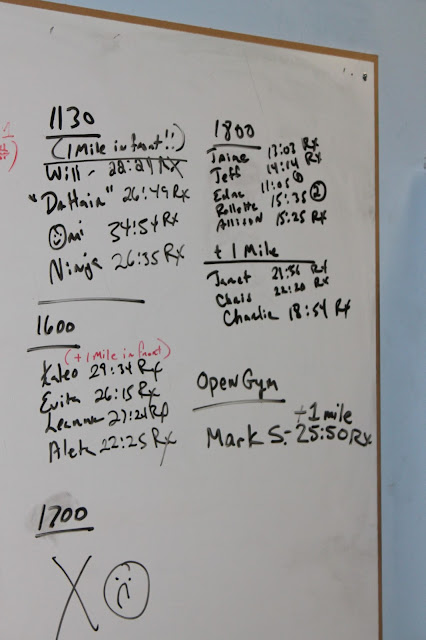 1130
(1 Mile in front!!)
Will - 22:21 Rx
"DaHaia" 26:49 Rx
Omi 34:54 Rx
Ninja 26:35 Rx
1600
(+1 Mile in front)
Kaleo 29:34 Rx
Evita 26:15 Rx
Leanna 27:21 Rx
Alek 22:25 Rx
1700
X
1800
Jaime 13:03 Rx
Jeff 14:14 Rx
11:05
Rollette 15:35 2
Allison 15:25 Rx
+ 1 Mile
Janet 21:56 Rx
Chris 22:20 Rx
Charlie 18:54 Rx
Open Gym
+1 mile
Mark S. - 25:50 Rx